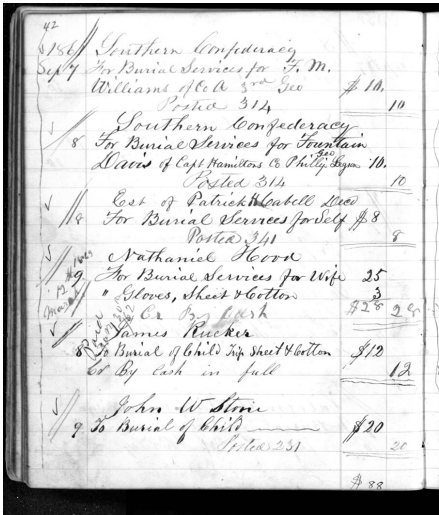 42
1861 Southern Confederacy
Sep 7 For Burial Services for F. M.
Williams of Co A 3rd Geo $10.
Posted 314 10
Southern Confederacy
8 For Burial Services for Fountain
Davis of Capt Hamiltons Co Phillip Geo Legion 10.
Posted 314 10
Est of Patrick H Cabell Decd
8 For Burial Services for Self $8
Posted 341 8
Nathaniel Hood
9 For Burial Services for Wife 25
" Gloves, Sheet & Cotton 3
Cr By Cash $28 28
Paid
James Rucker
8 To Burial of Child Trip Sheet & Cotton $12
Cr By Cash in full 12
John W Stone
9 To Burial of Child $20
Posted 231 20
$88